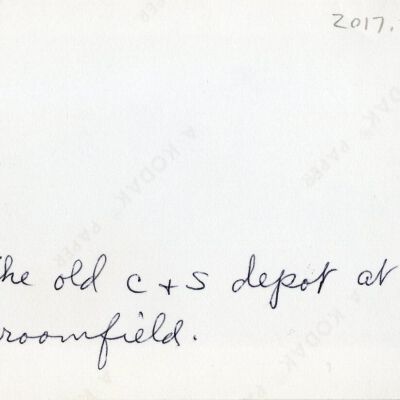 2017.
A KODAK PAPER
A KODAK PAPER
he old c + s depot at
roomfield.